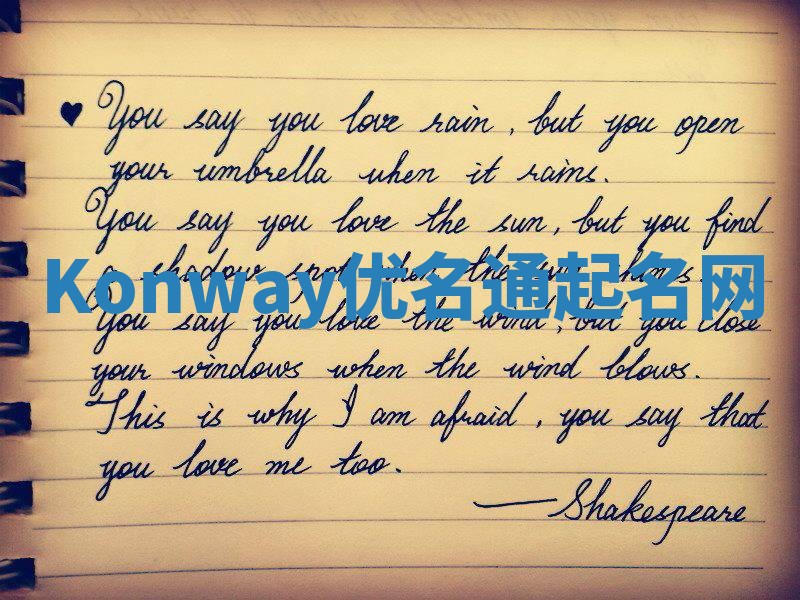 ♥ You say you love rain, but you open
your umbrella when it rains.
You say you love the sun, but you find
a shadow spot when the sun shines.
Konway优名通起名网
You say you love the wind, but you close
your windows when the wind blows.
This is why I am afraid, you say that
you love me too.
—Shakespeare